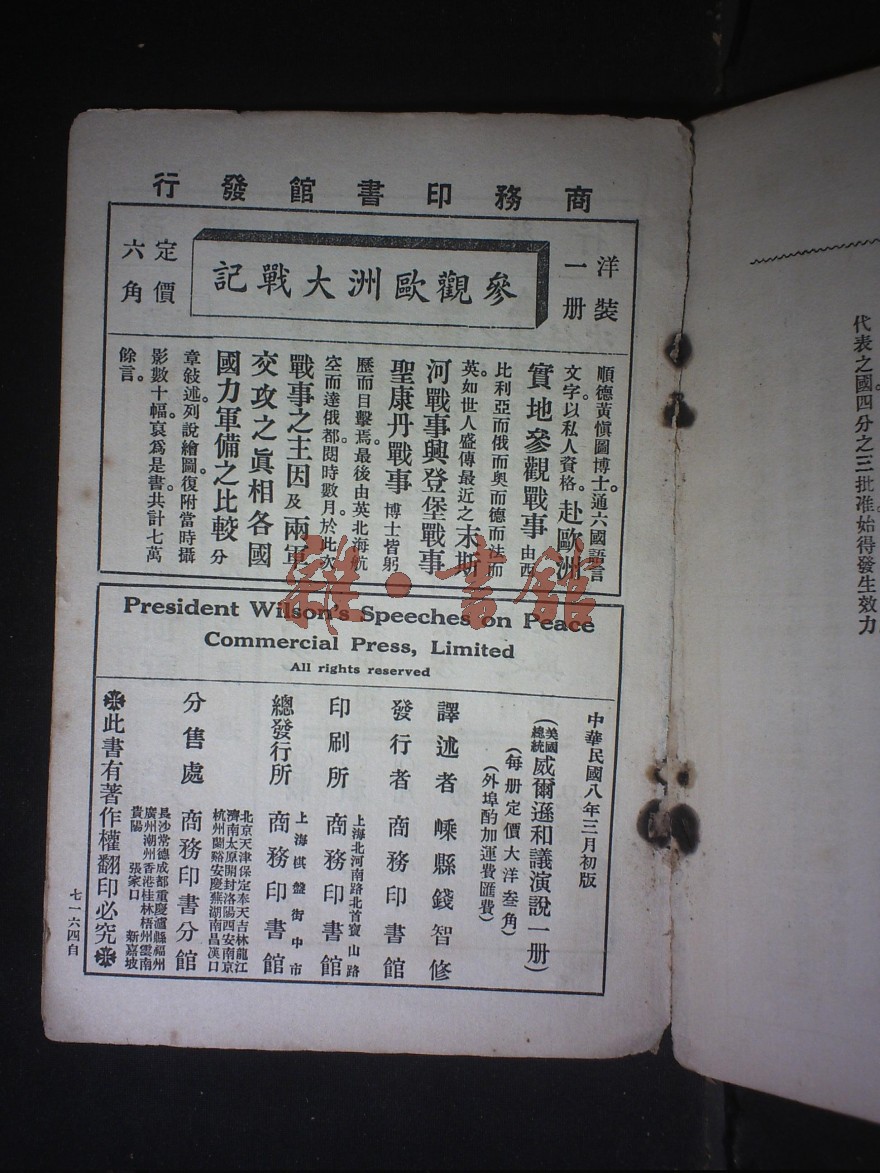 商務印書館發行
洋裝一册
參觀歐洲大戰記
定價六角
順德黃愼圖博士。通六國語言
文字。以私人資格。赴歐洲
實地參觀戰事 由西
比利亞而俄而奧而德而法而
英。如世人盛傳最近之末斯
河戰事興登堡戰事
聖康丹戰事 博士皆躬
歷而目擊焉。最後由英北海航
空而達俄都。閱時數月。於此次
戰事之主因及兩軍
交攻之眞相各國
國力軍備之比較 分
章敍述。列說繪圖。復附當時攝
影數十幅。裒爲是書。共計七萬
餘言。
President Wilson's Speeches on Peace
Commercial Press, Limited
All rights reserved
中華民國八年三月初版
(美國總統威爾遜和議演說一册)
(每册定價大洋叁角)
(外埠酌加運費匯費)
譯述者 嵊縣錢智修
發行者 商務印書館
上海北河南路北首寶山路
印刷所 商務印書館
上海棋盤街中市
總發行所 商務印書館
北京天津保定奉天吉林龍江
濟南太原開封洛陽西安南京
杭州蘭谿安慶蕪湖南昌漢口
分售處 商務印書分館
長沙常德成都重慶瀘縣福州
廣州潮州香港桂林梧州雲南
貴陽 張家口 新嘉坡
此書有著作權翻印必究
七一六四自
代表之國。四分之三批准。始得發生效力
雜·書館